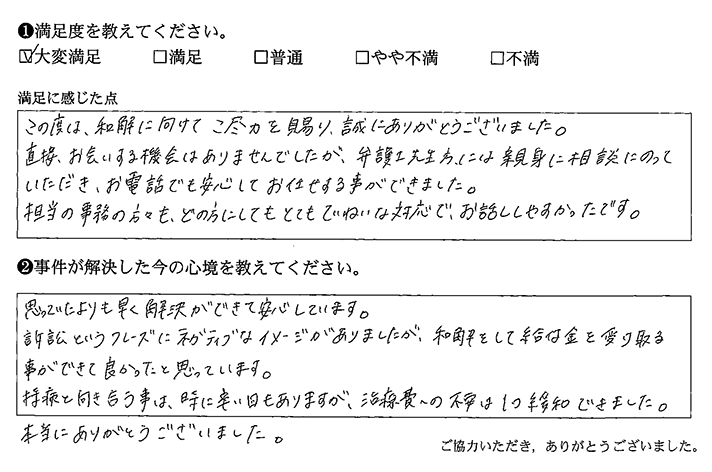 ❶満足度を教えてください。
☑大変満足 □満足 □普通 □やや不満 □不満
満足に感じた点
この度は、和解に向けてご尽力を賜り、誠にありがとうございました。
直接、お会いする機会はありませんでしたが、弁護士先生方には親身に相談にのって
いただき、お電話でも安心してお任せする事ができました。
担当の事務の方々も、どの方にしてもとてもていねいな対応で、お話ししやすかったです。
❷事件が解決した今の心境を教えてください。
思っていたよりも早く解決ができて安心しています。
訴訟というフレーズにネガティブなイメージがありましたが、和解をして給付金を受け取る
事ができて良かったと思っています。
持病と向き合う事は、時に辛い日もありますが、治療費への不安は1つ緩和できました。
本当にありがとうございました。
ご協力いただき，ありがとうございました。